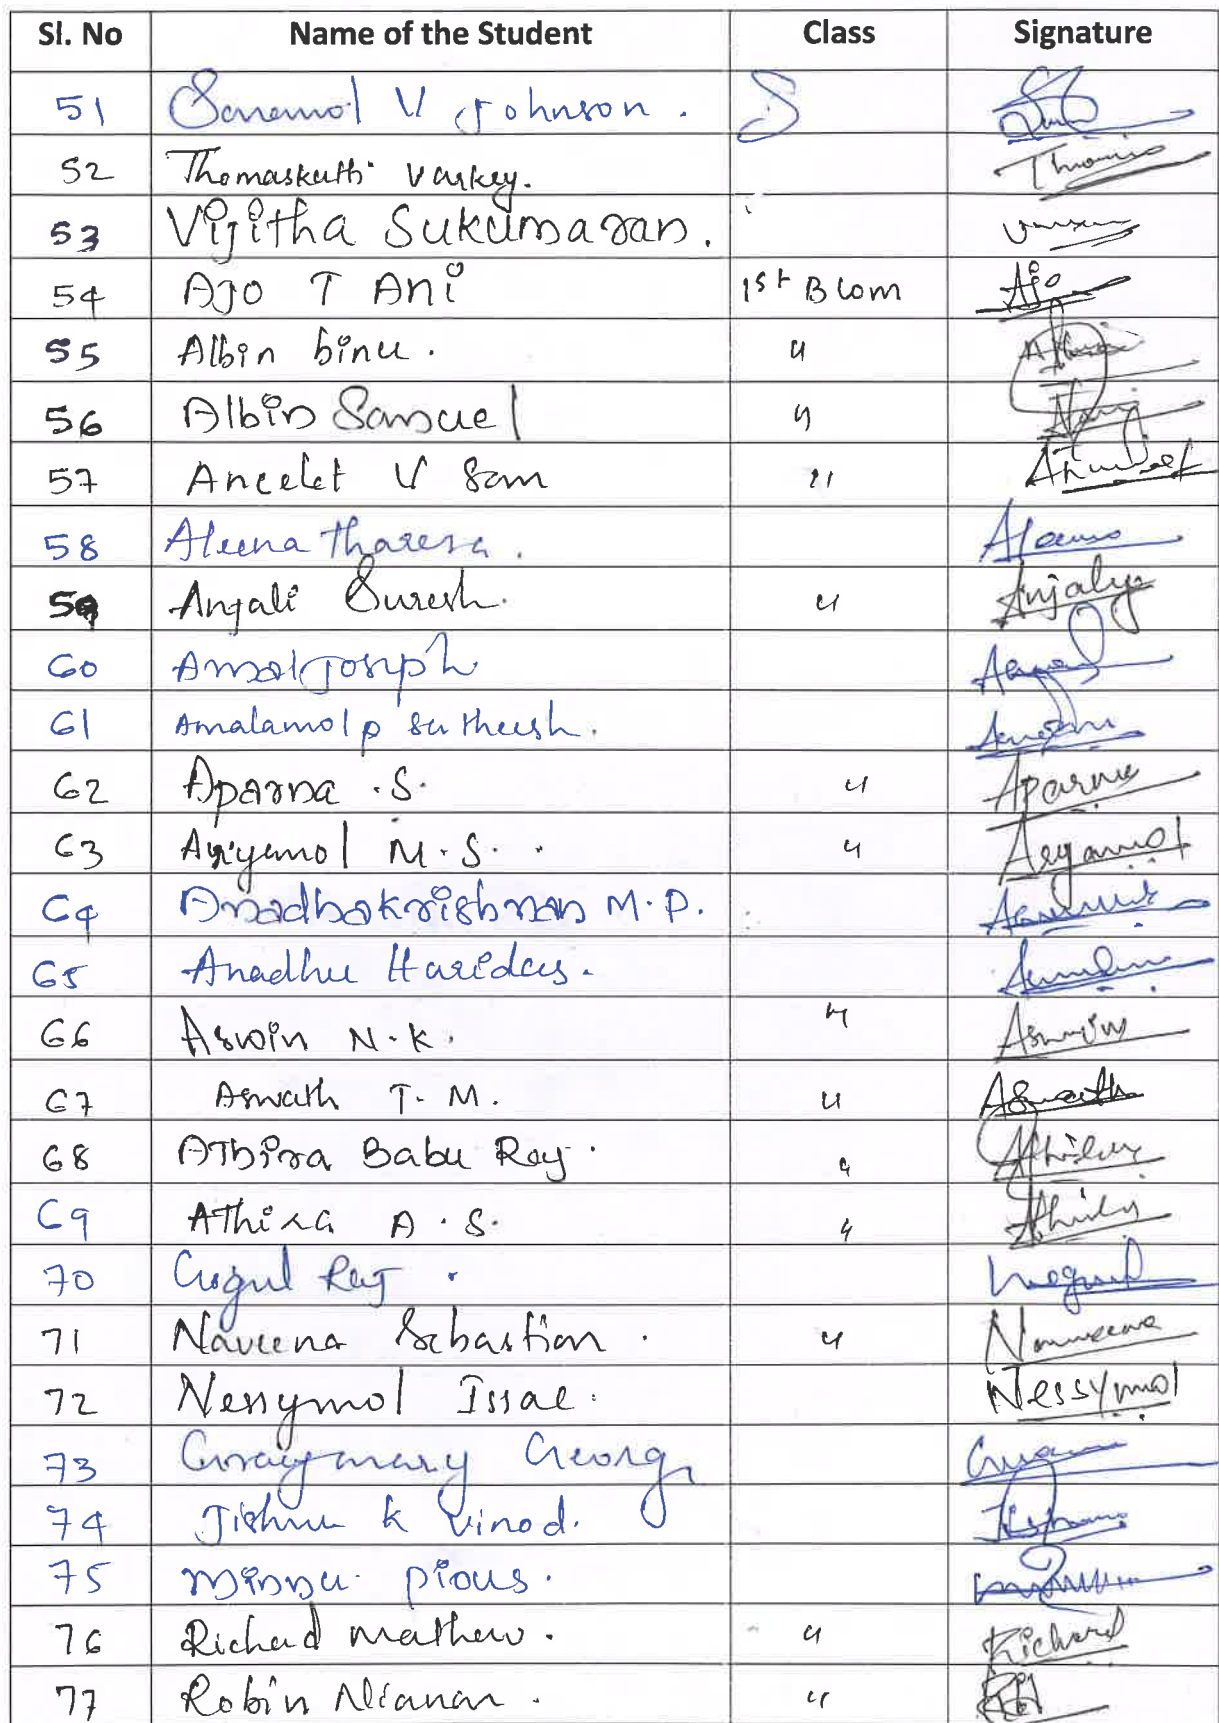 Sl. No Name of the Student Class Signature
51 Sanemol V Johnson.
52 Thomaskutti Varkey.
53 Vijitha Sukumaran.
54 Ajo T Ani 1st B Com Ajo
55 Albin binu. "
56 Albin Samuel "
57 Ancelet V Sam "
58 Aleena Tharesa.
59 Anjali Suresh. " Anjaly
60 Amal Joseph
61 Amalamol p Sutheesh.
62 Aparna .S. " Aparna
63 Aryamol M.S. " Aryamol
64 Anadhakrishnan M.P.
65 Anadhu Haridas.
66 Aswin N.K. " Aswin
67 Aswath T.M. " Aswath
68 Athira Babu Raj. "
69 Athira A.S. "
70 Gogul Raj
71 Naveena Sebastian. " Naveena
72 Nessymol Issac. Nessymol
73 Gracymary Georg
74 Jishnu k Vinod.
75 Minnu pious.
76 Richard mathew. " Richard
77 Robin "